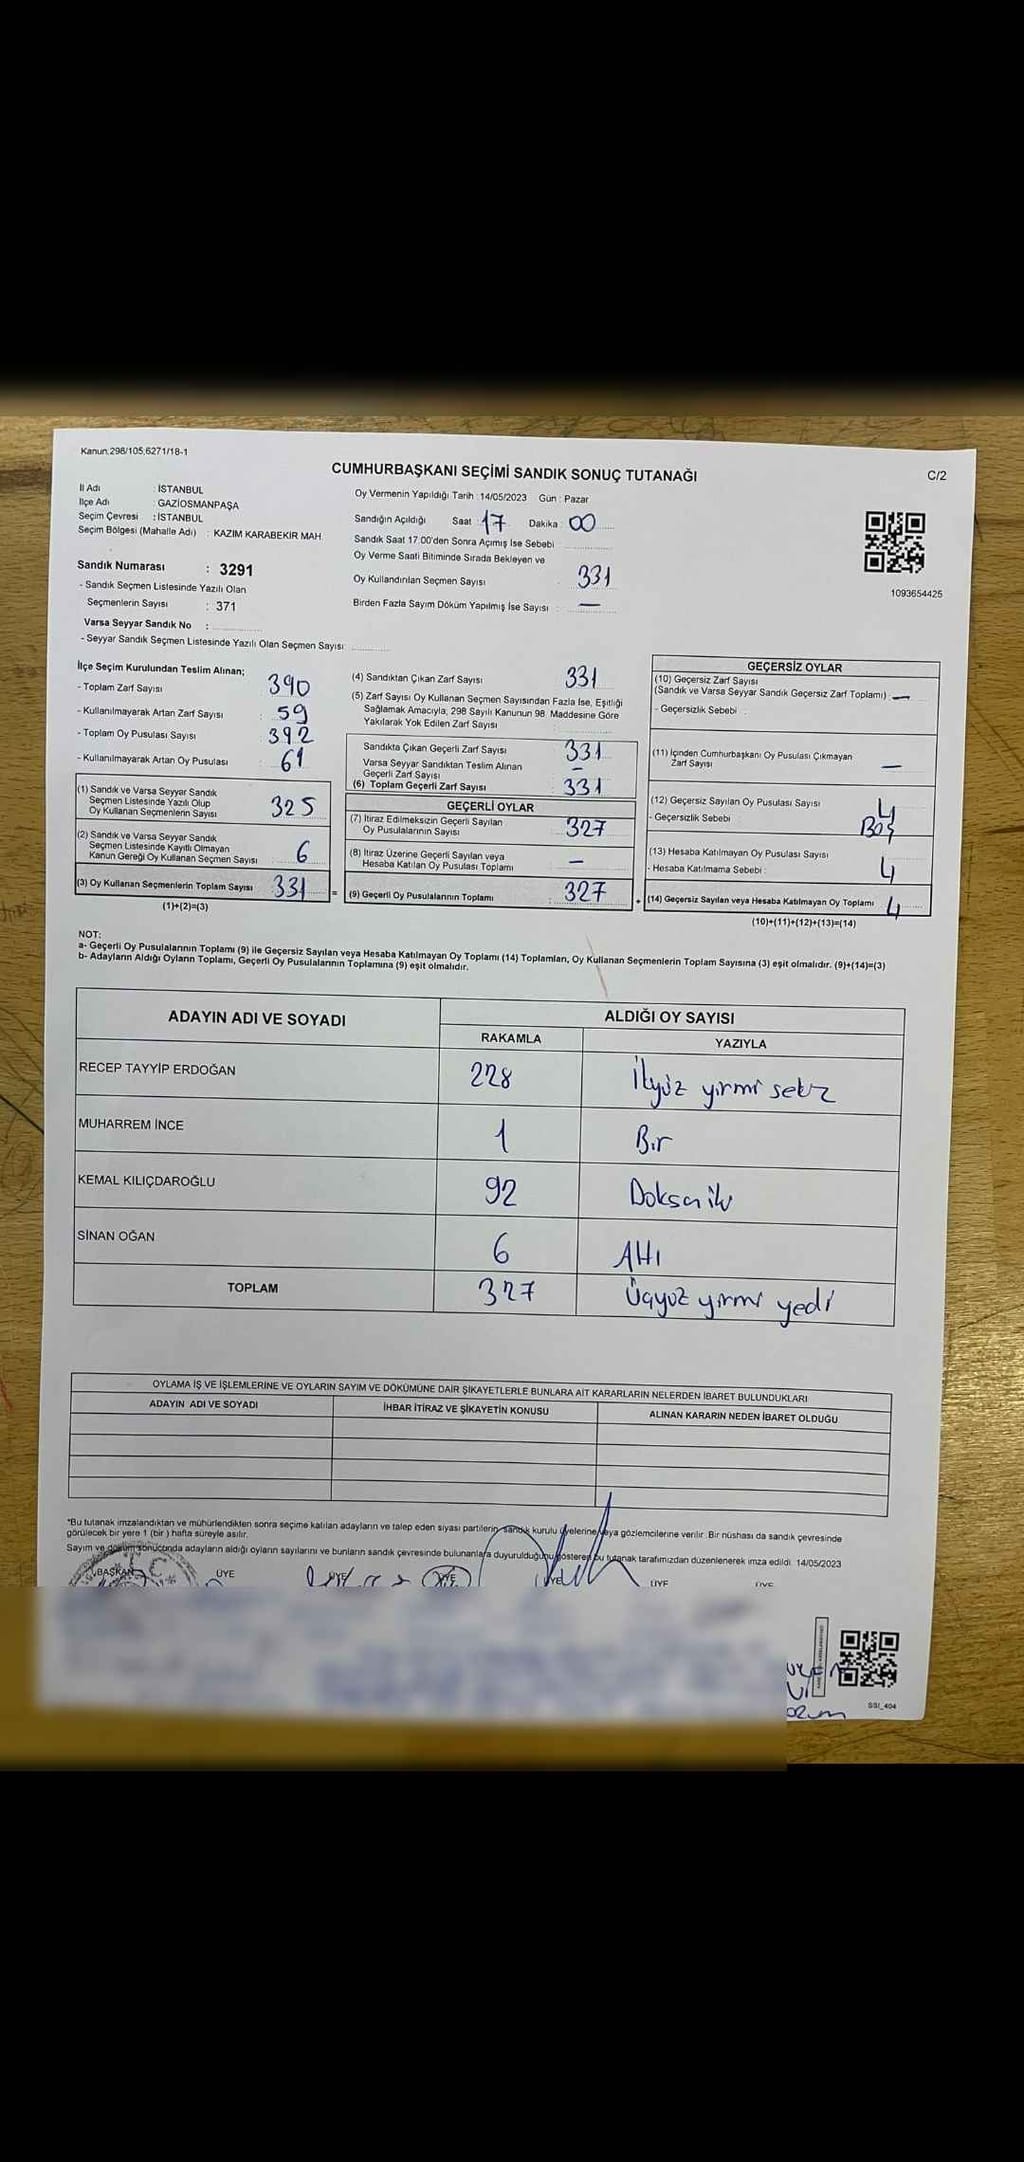 Kanun:298/105,6271/18-1
CUMHURBAŞKANI SEÇİMİ SANDIK SONUÇ TUTANAĞI
C/2
İl Adı : İSTANBUL
İlçe Adı : GAZİOSMANPAŞA
Seçim Çevresi : İSTANBUL
Seçim Bölgesi (Mahalle Adı) : KAZIM KARABEKİR MAH.
Sandık Numarası : 3291
- Sandık Seçmen Listesinde Yazılı Olan
Seçmenlerin Sayısı : 371
Varsa Seyyar Sandık No :
- Seyyar Sandık Seçmen Listesinde Yazılı Olan Seçmen Sayısı:
Oy Vermenin Yapıldığı Tarih : 14/05/2023 Gün : Pazar
Sandığın Açıldığı Saat 17 Dakika : 00
Sandık Saat 17.00'den Sonra Açımış İse Sebebi :
Oy Verme Saati Bitiminde Sırada Bekleyen ve
Oy Kullandırılan Seçmen Sayısı 331
Birden Fazla Sayım Döküm Yapılmış İse Sayısı : —
1093654425
İlçe Seçim Kurulundan Teslim Alınan;
- Toplam Zarf Sayısı 390
- Kullanılmayarak Artan Zarf Sayısı : 59
- Toplam Oy Pusulası Sayısı 392
- Kullanılmayarak Artan Oy Pusulası : 61
(1) Sandık ve Varsa Seyyar Sandık
Seçmen Listesinde Yazılı Olup
Oy Kullanan Seçmenlerin Sayısı 325
(2) Sandık ve Varsa Seyyar Sandık
Seçmen Listesinde Kayıtlı Olmayan
Kanun Gereği Oy Kullanan Seçmen Sayısı 6
(3) Oy Kullanan Seçmenlerin Toplam Sayısı 331 =
(1)+(2)=(3)
(4) Sandıktan Çıkan Zarf Sayısı 331
(5) Zarf Sayısı Oy Kullanan Seçmen Sayısından Fazla İse, Eşitliği
Sağlamak Amacıyla, 298 Sayılı Kanunun 98. Maddesine Göre
Yakılarak Yok Edilen Zarf Sayısı
Sandıkta Çıkan Geçerli Zarf Sayısı 331
Varsa Seyyar Sandıktan Teslim Alınan
Geçerli Zarf Sayısı —
(6) Toplam Geçerli Zarf Sayısı 331
GEÇERLİ OYLAR
(7) İtiraz Edilmeksizin Geçerli Sayılan
Oy Pusulalarının Sayısı 327
(8) İtiraz Üzerine Geçerli Sayılan veya
Hesaba Katılan Oy Pusulası Toplamı —
(9) Geçerli Oy Pusulalarının Toplamı : 327 +
GEÇERSİZ OYLAR
(10) Geçersiz Zarf Sayısı
(Sandık ve Varsa Seyyar Sandık Geçersiz Zarf Toplamı) : —
- Geçersizlik Sebebi :
(11) İçinden Cumhurbaşkanı Oy Pusulası Çıkmayan
Zarf Sayısı —
(12) Geçersiz Sayılan Oy Pusulası Sayısı 4
- Geçersizlik Sebebi Boş
(13) Hesaba Katılmayan Oy Pusulası Sayısı
- Hesaba Katılmama Sebebi : 4
(14) Geçersiz Sayılan veya Hesaba Katılmayan Oy Toplamı 4
(10)+(11)+(12)+(13)=(14)
NOT:
a- Geçerli Oy Pusulalarının Toplamı (9) ile Geçersiz Sayılan veya Hesaba Katılmayan Oy Toplamı (14) Toplamları, Oy Kullanan Seçmenlerin Toplam Sayısına (3) eşit olmalıdır. (9)+(14)=(3)
b- Adayların Aldığı Oyların Toplamı, Geçerli Oy Pusulalarının Toplamına (9) eşit olmalıdır.
ADAYIN ADI VE SOYADI
ALDIĞI OY SAYISI
RAKAMLA YAZIYLA
RECEP TAYYİP ERDOĞAN 228 İkyüz yirmi sekiz
MUHARREM İNCE 1 Bir
KEMAL KILIÇDAROĞLU 92 Doksan iki
SİNAN OĞAN 6 Altı
TOPLAM 327 Üçyüz yirmi yedi
OYLAMA İŞ VE İŞLEMLERİNE VE OYLARIN SAYIM VE DÖKÜMÜNE DAİR ŞİKAYETLERLE BUNLARA AİT KARARLARIN NELERDEN İBARET BULUNDUKLARI
ADAYIN ADI VE SOYADI İHBAR İTİRAZ VE ŞİKAYETİN KONUSU ALINAN KARARIN NEDEN İBARET OLDUĞU
*Bu tutanak imzalandıktan ve mühürlendikten sonra seçime katılan adayların ve talep eden siyasi partilerin sandık kurulu üyelerine veya gözlemcilerine verilir. Bir nüshası da sandık çevresinde
görülecek bir yere 1 (bir ) hafta süreyle asılır.
Sayım ve döküm sonucunda adayların aldığı oyların sayılarını ve bunların sandık çevresinde bulunanlara duyurulduğunu gösteren bu tutanak tarafımızdan düzenlenerek imza edildi. 14/05/2023
BAŞKAN ÜYE ÜYE ÜYE ÜYE ÜYE ÜYE
SSI_404